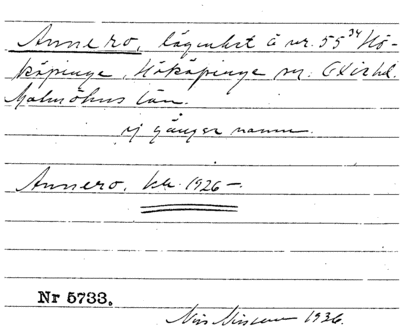 Annero, lägenhet å nr. 55³⁴ Hö-
köpinge, Hököpinge sn: Oxie hd.
Malmöhus län.
ej gänger namn.
Annero, kk. 1926 –.
Nr 5733.
Nils 1936.